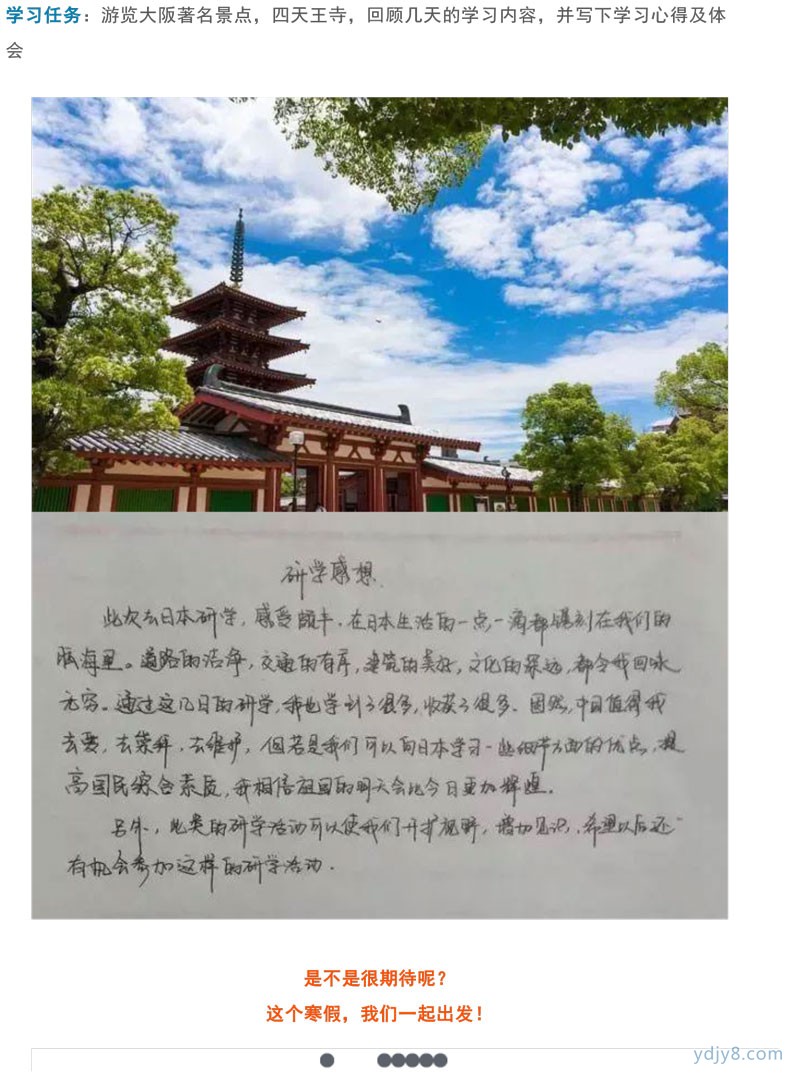 学习任务：游览大阪著名景点，四天王寺，回顾几天的学习内容，并写下学习心得及体
会
研学感想
此次去日本研学，感受颇丰，在日本生活的一点一滴都镌刻在我们的
脑海里。道路的洁净，交通的有序，建筑的美好，文化的深远，都令我回味
无穷。通过这几日的研学，我也学到了很多，收获了很多。固然，中国值得我
去爱，去崇拜，去维护，但若是我们可以向日本学习一些细节方面的优点，提
高国民综合素质，我相信祖国的明天会比今日更加辉煌。
另外，此类的研学活动可以使我们开扩视野，增加见识，希望以后还
有机会参加这样的研学活动。
是不是很期待呢？
这个寒假，我们一起出发！
ydjy8.com